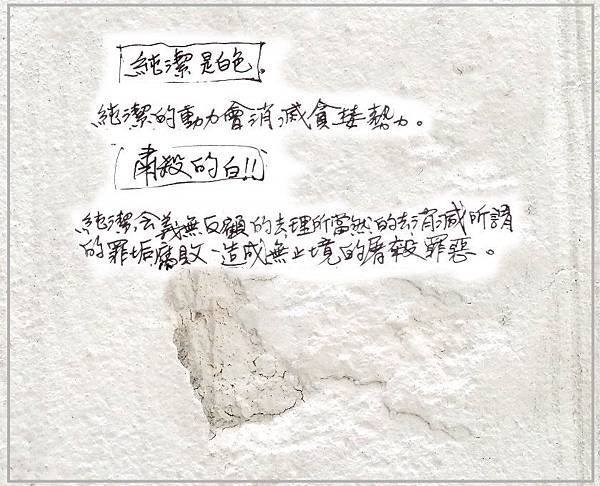 純潔是白色。
純潔的動力會消滅貪婪勢力。
肅殺的白!!
純潔,會義無反顧的去理所當然的去消滅所謂
的罪垢腐敗、造成無止境的屠殺罪惡。